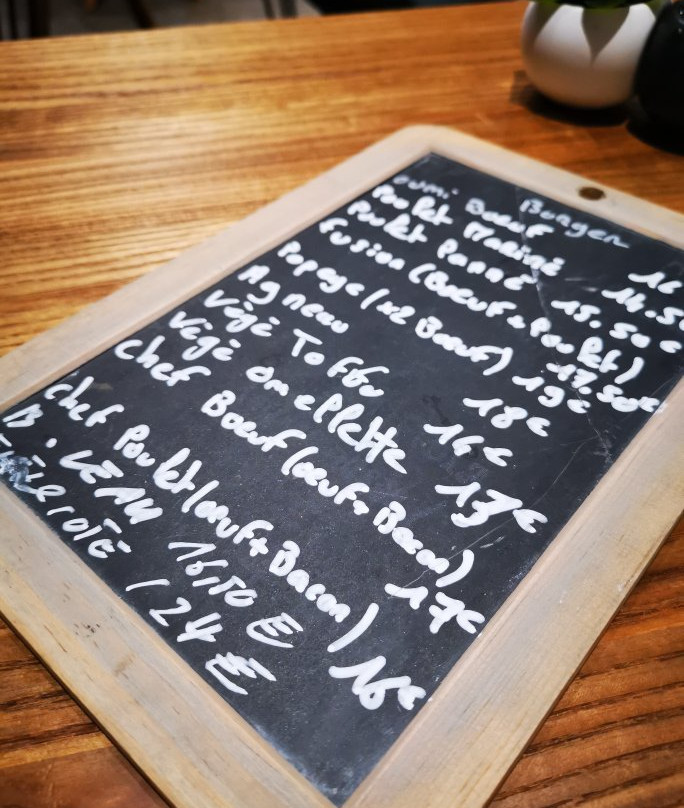 Burger
Boeuf 16
Poulet Mariné 14.50
Poulet Panné 15.50€
Fusion (Boeuf + Poulet) 17.50€
Popeye (x2 Boeuf) 19€
Agneau 18€
Végé Toffu 14€
Végé omellette 13€
Chef Boeuf (oeuf + Bacon) 17€
Chef Poulet (oeuf + Bacon) 16€
B. VEAU 16,50 E
124 E